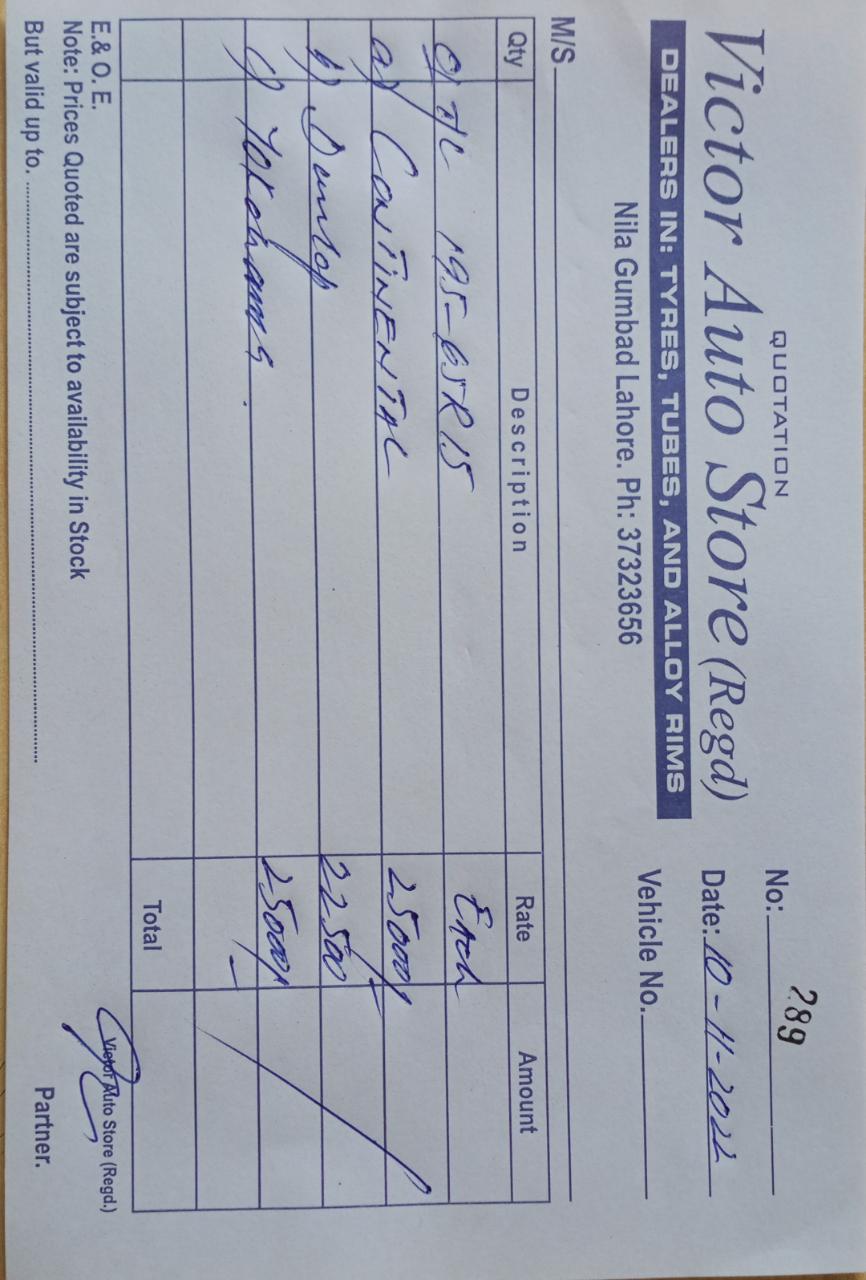 QUOTATION
Victor Auto Store (Regd)
DEALERS IN: TYRES, TUBES, AND ALLOY RIMS
Nila Gumbad Lahore. Ph: 37323656
No: 289
Date: 10-11-2022
Vehicle No.
M/S
Qty Description Rate Amount
T/L 195-65R15 Each
a) CONTINENTAL 25000/-
b) Dunlop 22500
c) Yokohama 25000/-
Total
E.& O. E.
Victor Auto Store (Regd.)
Note: Prices Quoted are subject to availability in Stock
But valid up to.
Partner.